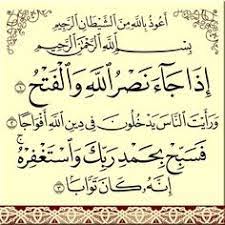 أَعُوذُ بِاللَّهِ مِنَ الشَّيْطَانِ الرَّجِيمِ
بِسْمِ اللَّهِ الرَّحْمَٰنِ الرَّحِيمِ
إِذَا جَاءَ نَصْرُ اللَّهِ وَالْفَتْحُ ١
وَرَأَيْتَ النَّاسَ يَدْخُلُونَ فِي دِينِ اللَّهِ أَفْوَاجًا ٢
فَسَبِّحْ بِحَمْدِ رَبِّكَ وَاسْتَغْفِرْهُ ۚ
إِنَّهُ كَانَ تَوَّابًا ٣